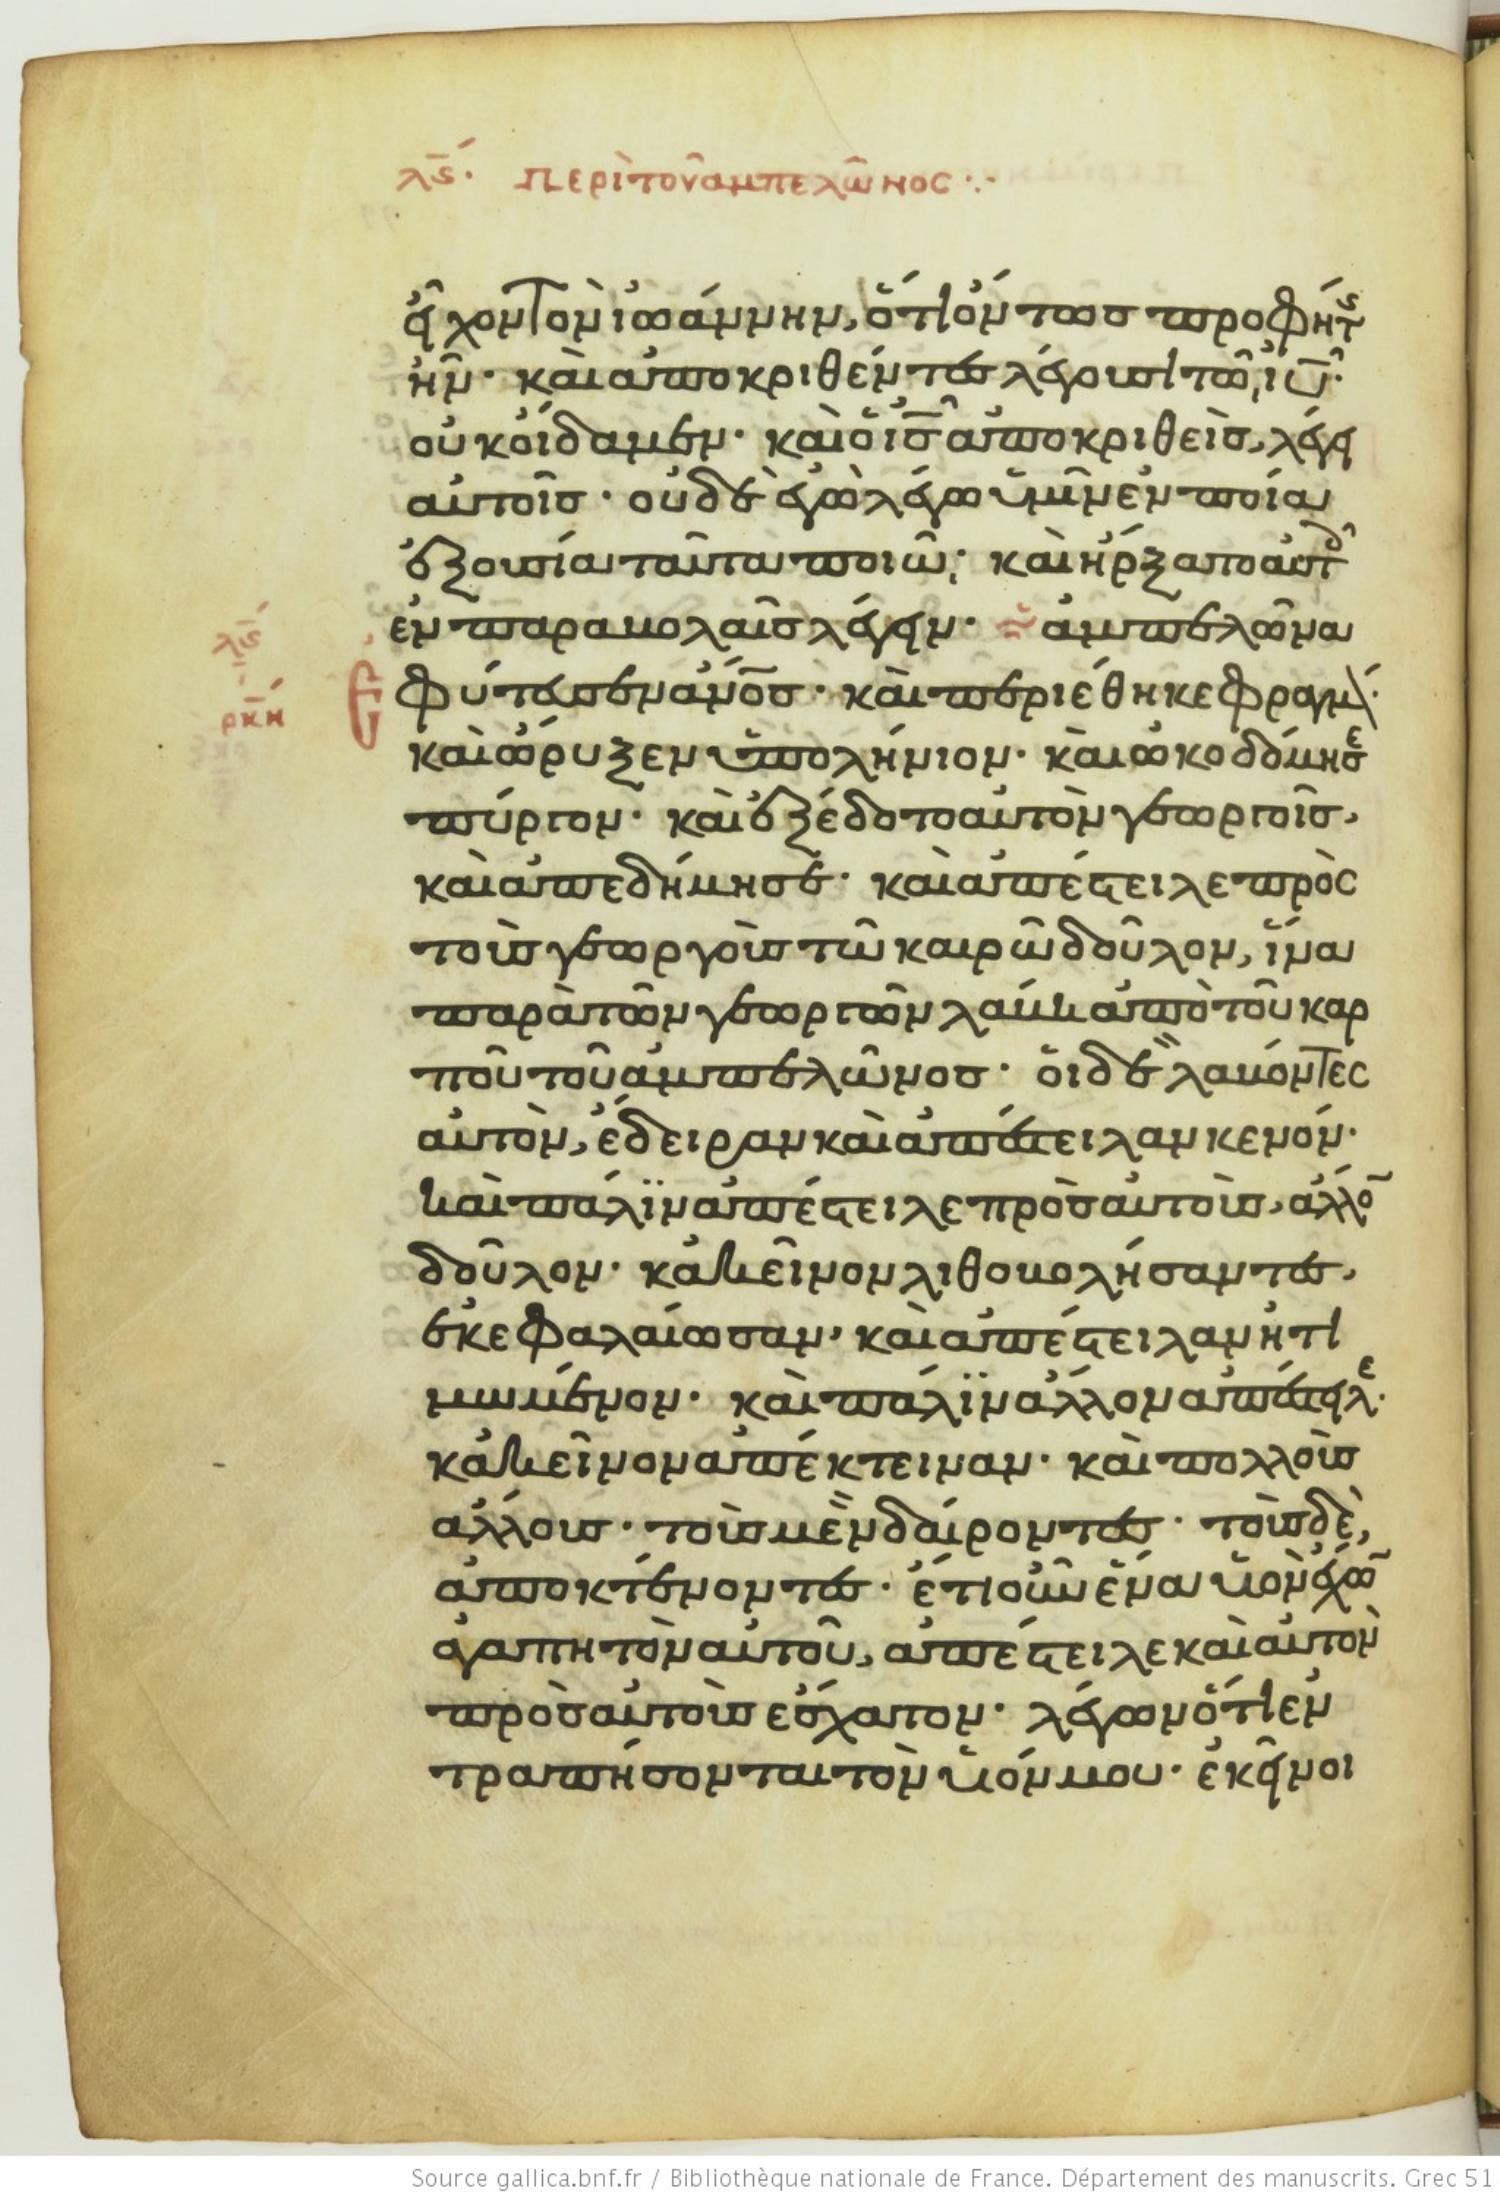 λς́. περὶ τοῦ ἀμπελῶνος ·:-
εἶχον τὸν ἰωάννην, ὅτι ὄντως προφήτς
ἦν · καὶ ἀποκριθέντες λέγουσι τῶ ἰῦ ·
οὐκ οἴδαμεν · καὶ ὁ ις ἀποκριθεὶς, λέγει
αὐτοῖς · οὐδὲ ἐγὼ λέγω ὑμῖν ἐν ποία
ἐξουσία ταῦτα ποιῶ · καὶ ἤρξατο αὐτοῖς
ἐν παραβολαῖς λέγειν · ἀμπελῶνα
ἐφύτευσεν ἀνος · καὶ περιέθηκε φραγμὸν ·
λς́
ρκη
καὶ ὤρυξεν ὑπολήνιον · καὶ ὠκοδόμησε
πύργον · καὶ ἐξέδοτο αὐτὸν γεωργοῖς,
καὶ ἀπεδήμησε · καὶ ἀπέστειλε πρὸς
τοὺς γεωργοὺς τῶ καιρῶ δοῦλον, ἵνα
παρὰ τῶν γεωργῶν λάβη ἀπὸ τοῦ καρ
ποῦ τοῦ ἀμπελῶνος · οἱ δὲ λαβόντες
αὐτὸν, ἔδειραν καὶ ἀπέστειλαν κενόν ·
καὶ πάλϊν ἀπέστειλε πρὸς αὐτοὺς, ἄλλο̄
δοῦλον · κἀκεῖνον λιθοβολήσαντες,
ἐκεφαλαίωσαν, καὶ ἀπέστειλαν ἠτι
μωμένον · καὶ πάλϊν ἄλλον ἀπέστειλε ·
κἀκεῖνον ἀπέκτειναν · καὶ πολλοὺς
ἄλλους · τοὺς μὲν δαίροντες · τοὺς δὲ,
ἀποκτένοντες · ἔτι οὖν ἕνα υἱὸν ἔχω̄
ἀγαπητὸν αὐτοῦ, ἀπέστειλε καὶ αὐτὸν
πρὸς αὐτοὺς ἔσχατον · λέγων ὅτι ἐν
τραπήσονται τὸν υἱόν μου · ἐκεῖνοι
Source gallica.bnf.fr / Bibliothèque nationale de France. Département des manuscrits. Grec 51